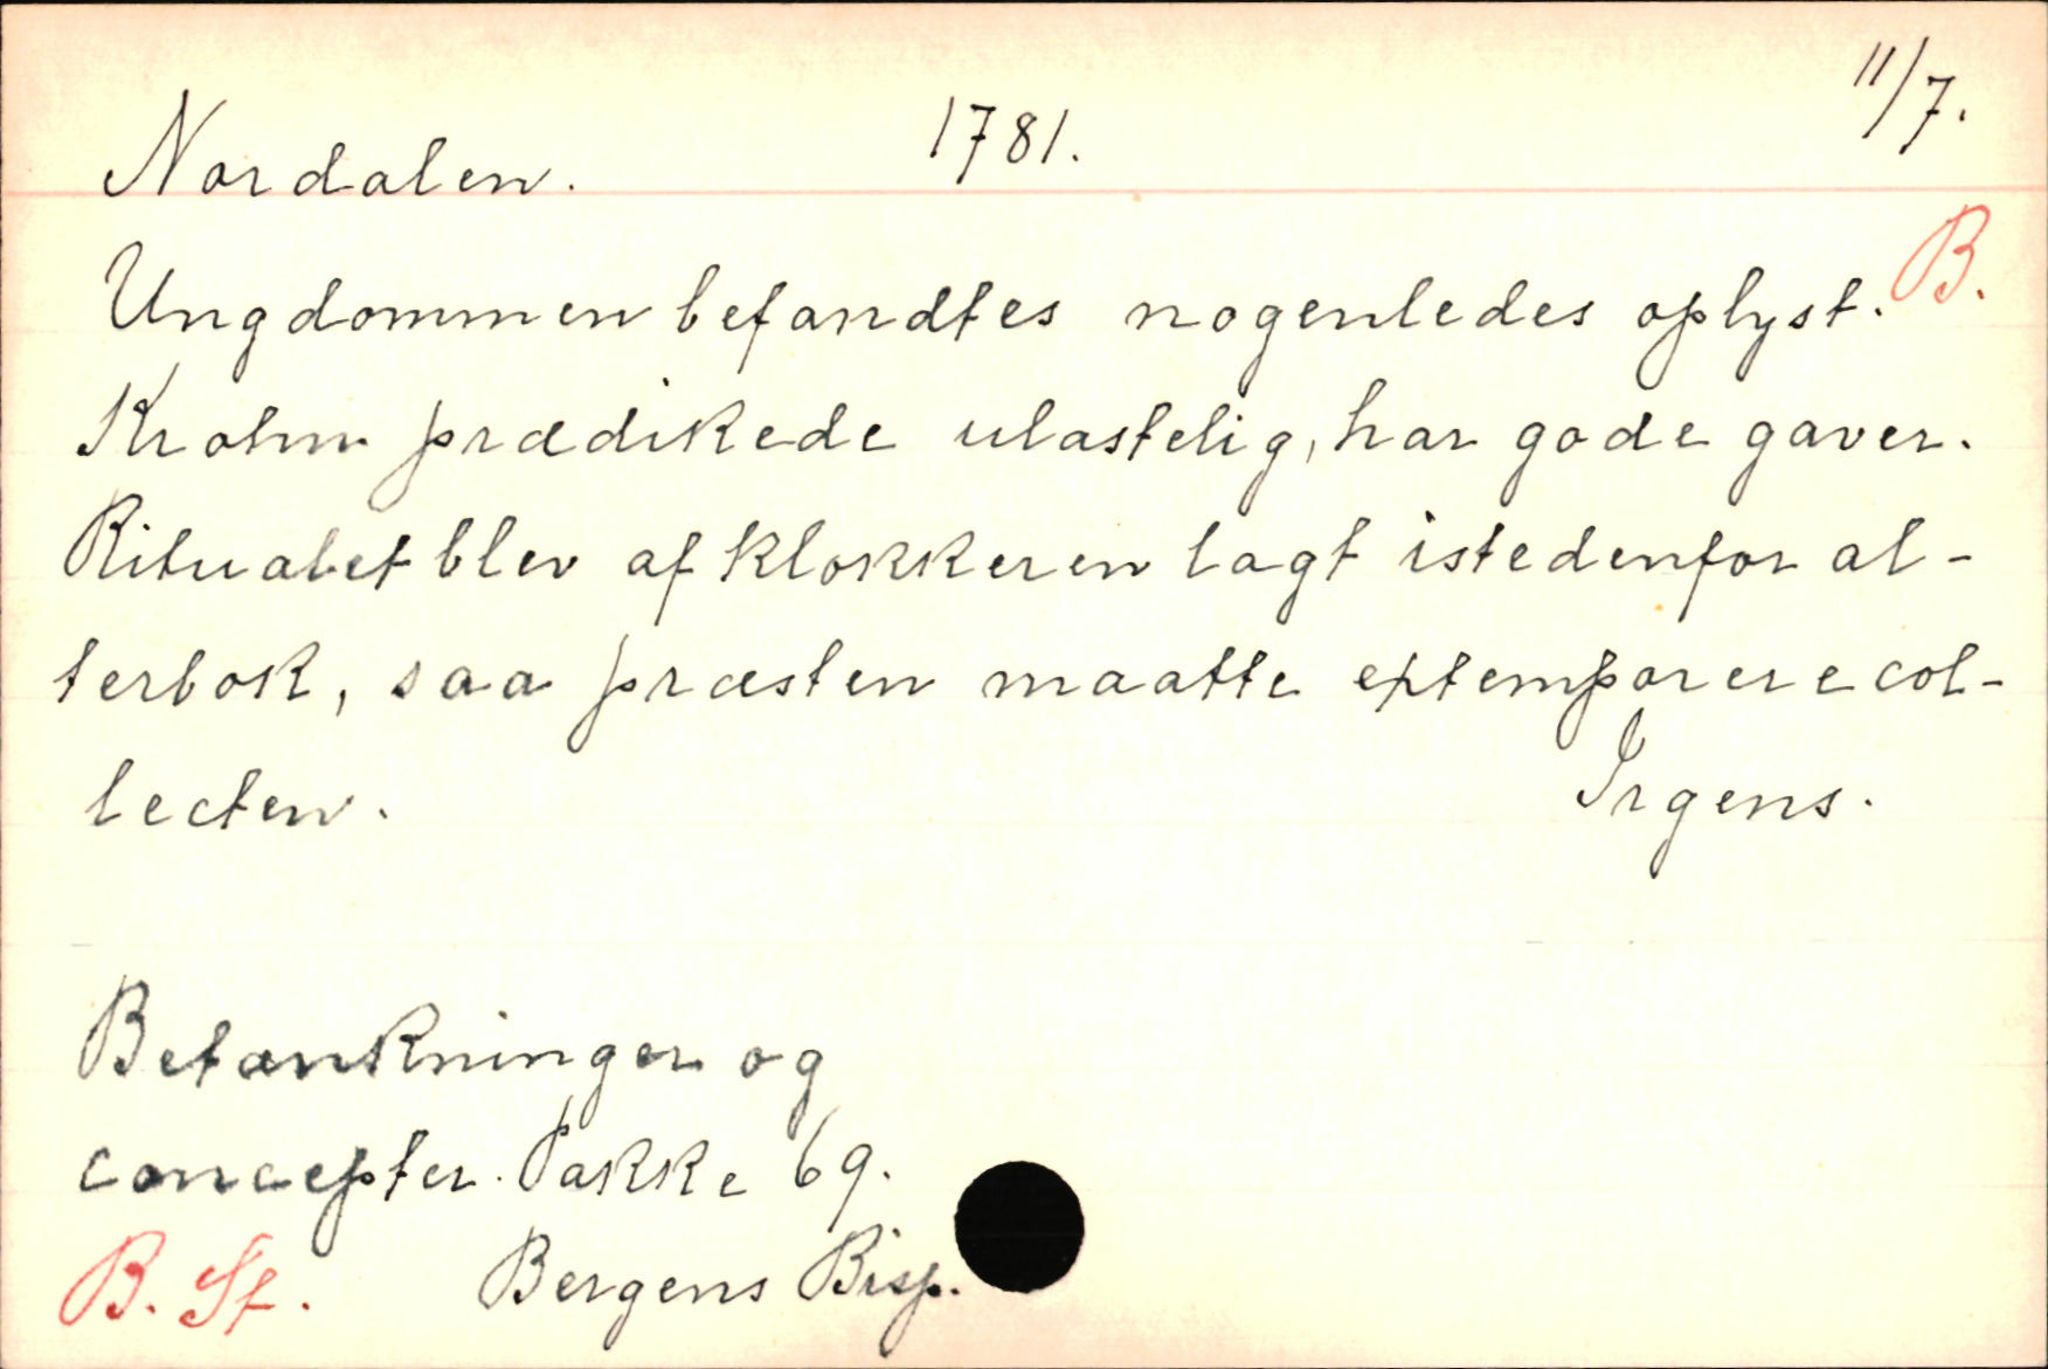 Nordalen. 1781. 11/7.
B.
Ungdommen befandtes nogenledes oplyst.
Krohn prædikede ulastelig, har gode gaver.
Ritualet blev af klokkeren lagt istedenfor al-
terbok, saa præsten maatte extemporere col-
lecten. Irgens.
Betænkninger og
concepter. Pakke 69.
B. St. Bergens Bisp.